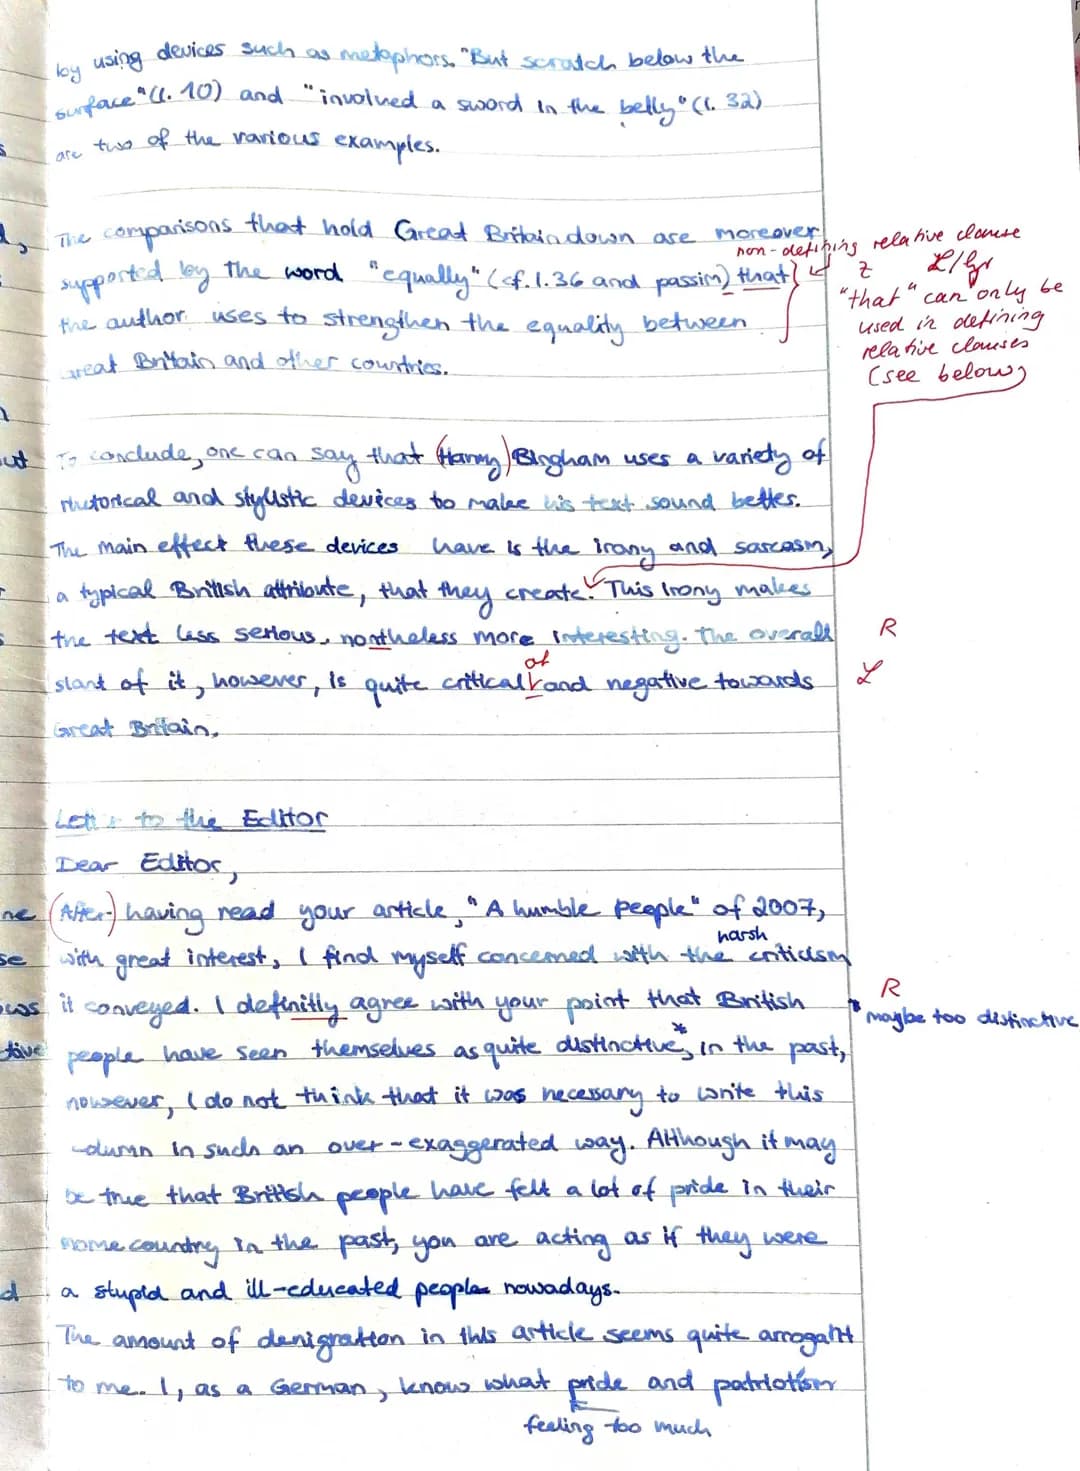 by using devices such as metaphors. "But scratch below the
surface" (l. 10) and "involved a sword in the belly" (l. 32)
are two of the various examples.
The comparisons that hold Great Britain down are moreover
non-defining relative clause
supported by the word "equally" (cf. l. 36 and passim) that
Z L/gr
"that" can only be
the author uses to strengthen the equality between
used in defining
relative clauses
Great Britain and other countries.
(see below)
ut To conclude, one can say that (Harry) Bingham uses a variety of
rhetorical and stylistic devices to make his text sound better.
The main effect these devices have is the irony and sarcasm,
a typical British attribute, that they create. This irony makes
the text less serious, nontheless more interesting. The overall R
of
slant of it, however, is quite critical and negative towards L
Great Britain.
Letter to the Editor
Dear Editor,
ne (After) having read your article, "A humble people" of 2007,
harsh
se with great interest, I find myself concerned with the criticism
was it conveyed. I definitly agree with your point that British R
* maybe too distinctive
tive people have seen themselves as quite distinctive*, in the past,
however, I do not think that it was necessary to write this
column in such an over-exaggerated way. Although it may
be true that British people have felt a lot of pride in their
home country in the past, you are acting as if they were
d a stupid and ill-educated people nowadays.
The amount of denigration in this article seems quite arrogant
to me. I, as a German, know what pride and patriotism
feeling too much